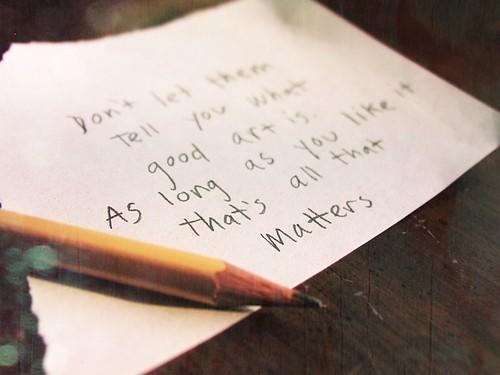 Don't let them
Tell you what
good art is.
As long as you like it
that's all that
Matters